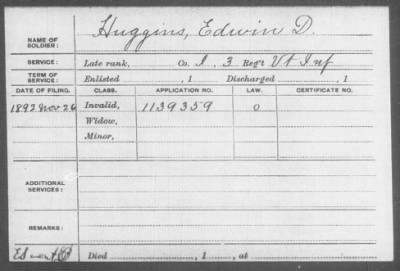 NAME OF SOLDIER: Huggins, Edwin D.
SERVICE: Late rank, Co. I, 3 Reg't Vt Inf
TERM OF SERVICE: Enlisted , 1 Discharged , 1
DATE OF FILING. CLASS. APPLICATION NO. LAW. CERTIFICATE NO.
1892 Nov 26 Invalid, 1139359 0
Widow,
Minor,
ADDITIONAL SERVICES:
REMARKS:
Died , 1 , at